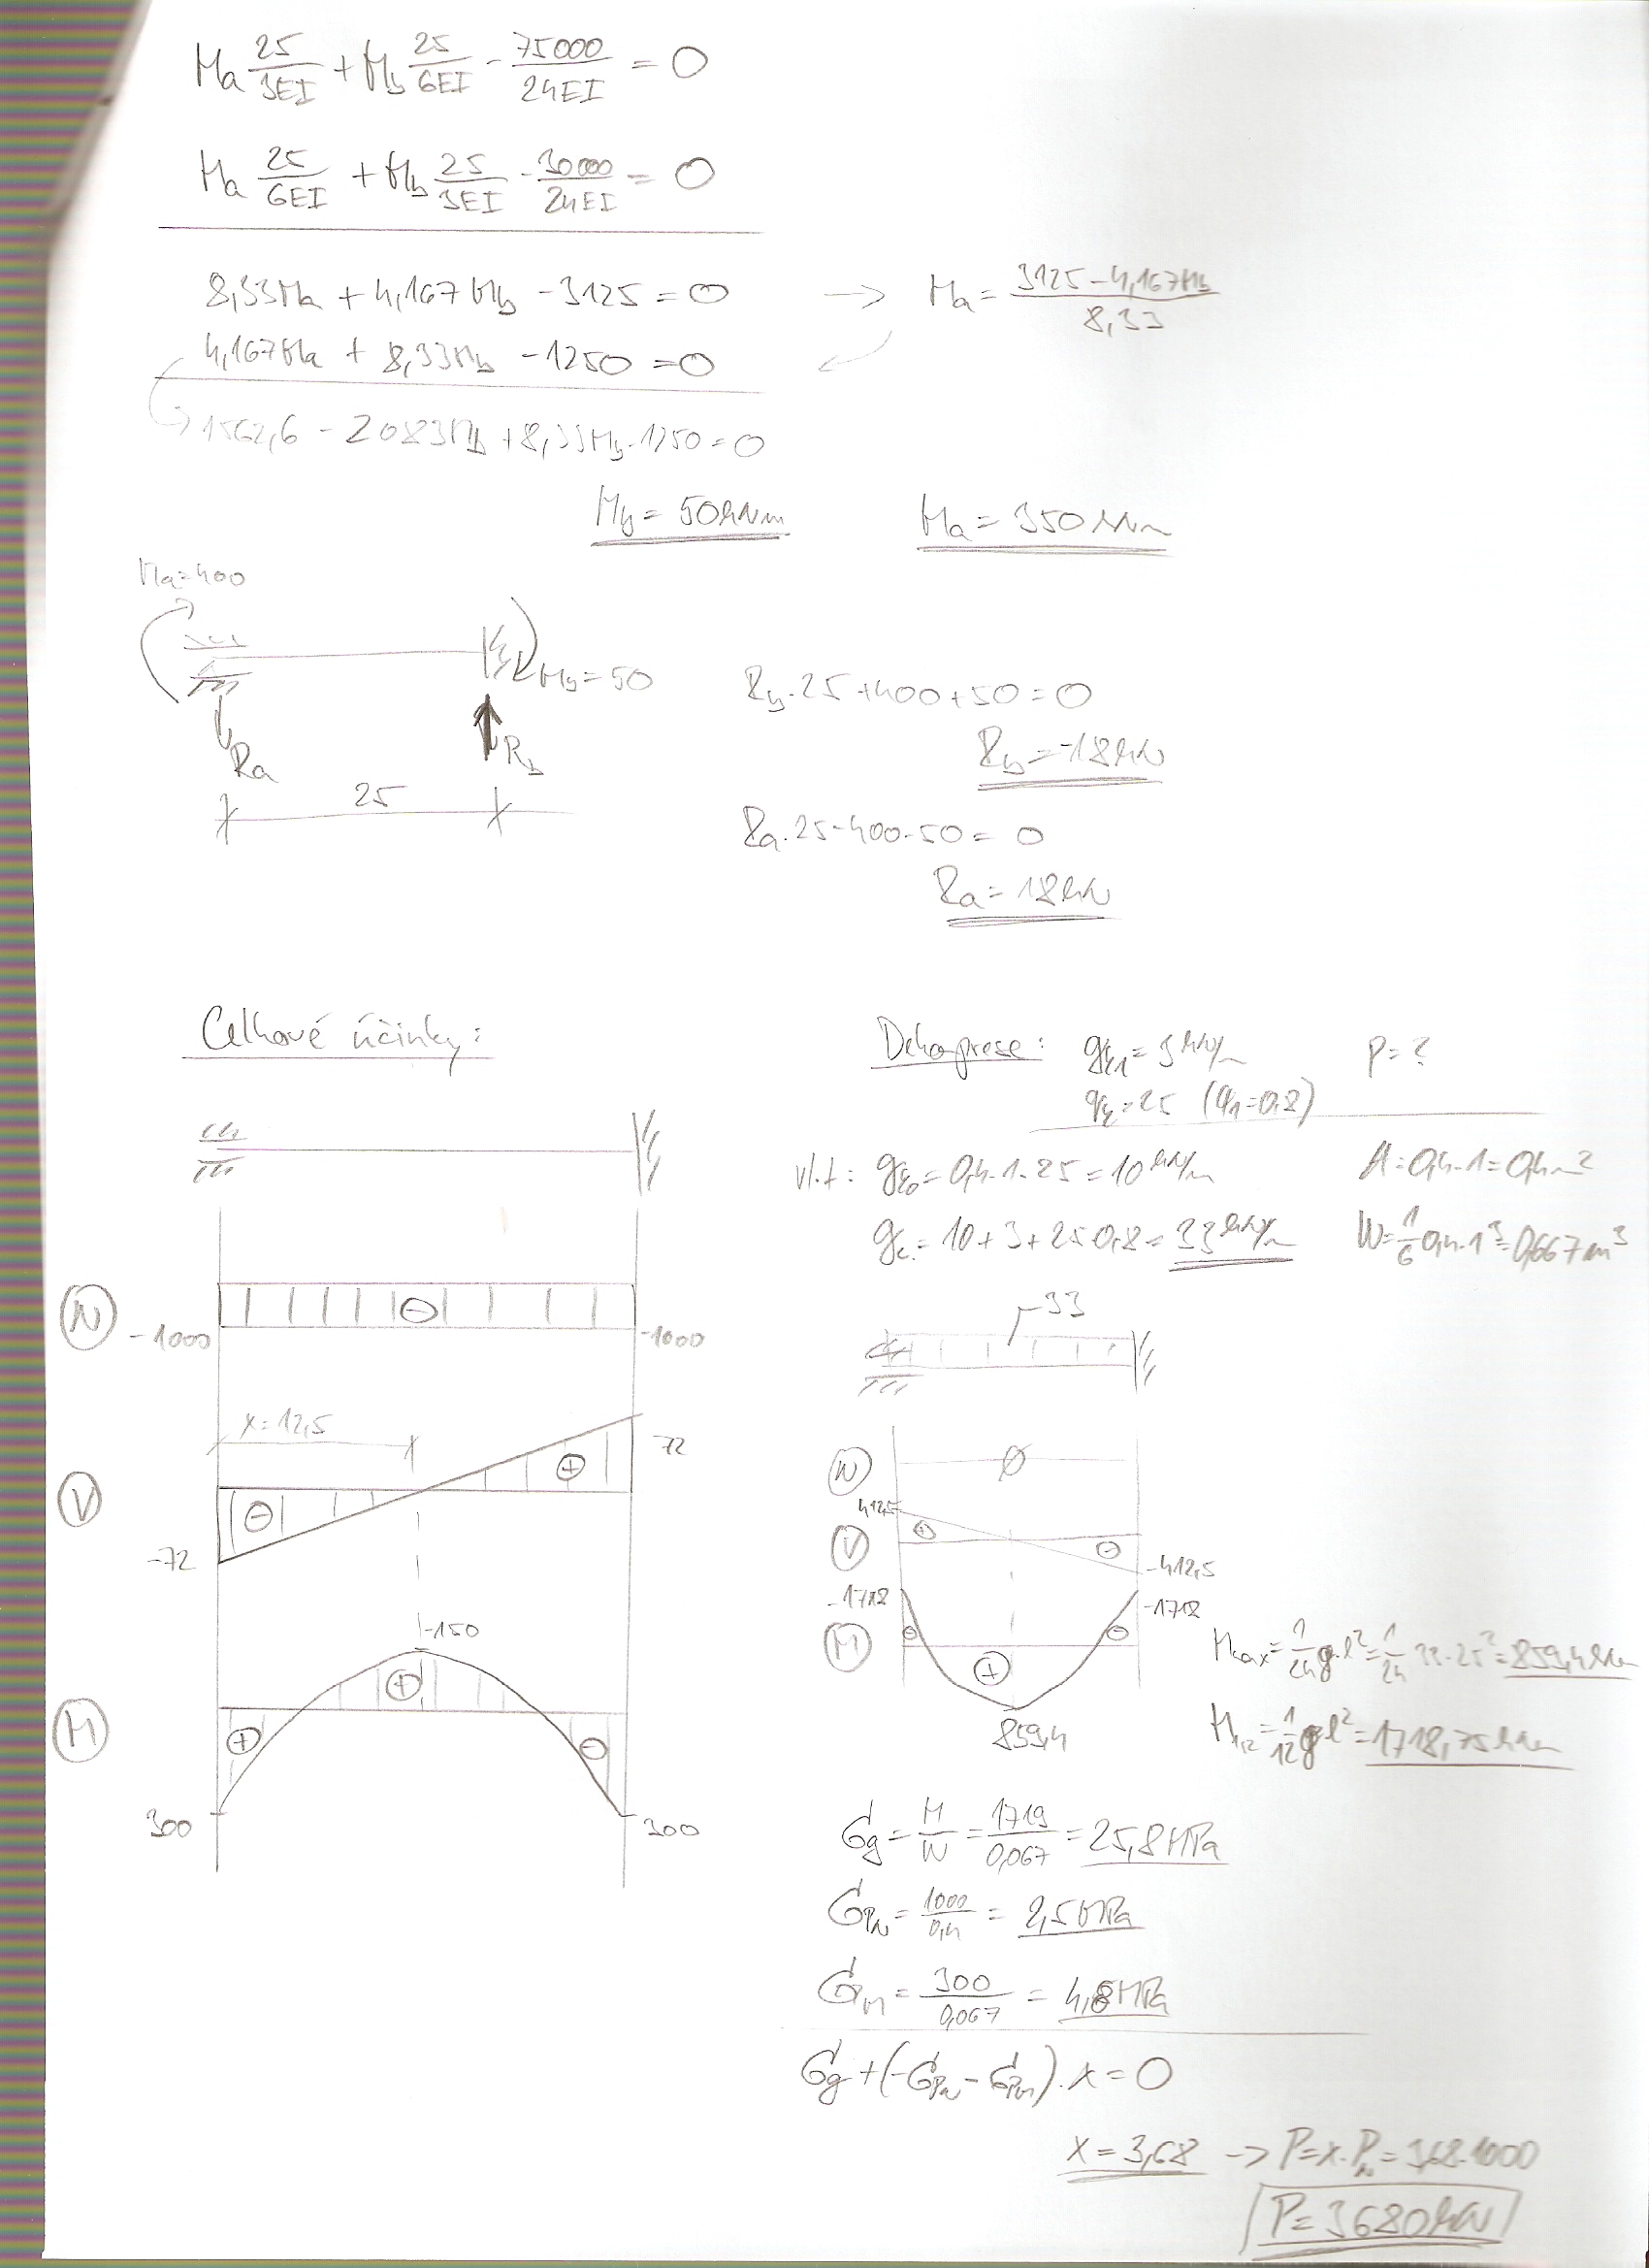 Ma 25/3EI + Mb 25/6EI - 75000/24EI = 0
Ma 25/6EI + Mb 25/3EI - 30000/24EI = 0
8,33Ma + 4,167Mb - 3125 = 0 → Ma = 3125-4,167Mb/8,33
4,167Ma + 8,33Mb - 1250 = 0
1562,6 - 2083Mb + 8,33Mb - 1250 = 0
Mb = 50kNm Ma = 350kNm
Ma=400
Mb = 50
Ra
Rb
25
Rb.25+400+50=0
Rb=-18kN
Ra.25-400-50=0
Ra=18kN
Celkové účinky:
N
-1000
-1000
x=12,5
V
-72
72
-150
M
300
300
Dekoprese: gk1=3kN/m P=?
qk=25 (φ1=0,8)
vl.t: gk0=0,4.1.25=10kN/m A=0,4.1=0,4m2
gc=10+3+25.0,8=33kN/m W=1/6 0,4.1³=0,667m³
33
N
Ø
V
412,5
-412,5
M
-1718
-1718
859,4
Mmax=1/24 g.l²=1/24 33.25²=859,4kNm
M1,2=1/12 gl²=1718,75kNm
σg=M/W=1719/0,067=25,8MPa
σPN=1000/0,4=2,5MPa
σPM=300/0,067=4,8MPa
σg+(-σPN-σPM).x=0
x=3,68 → P=x.PN=3,68.1000
P=3680kN